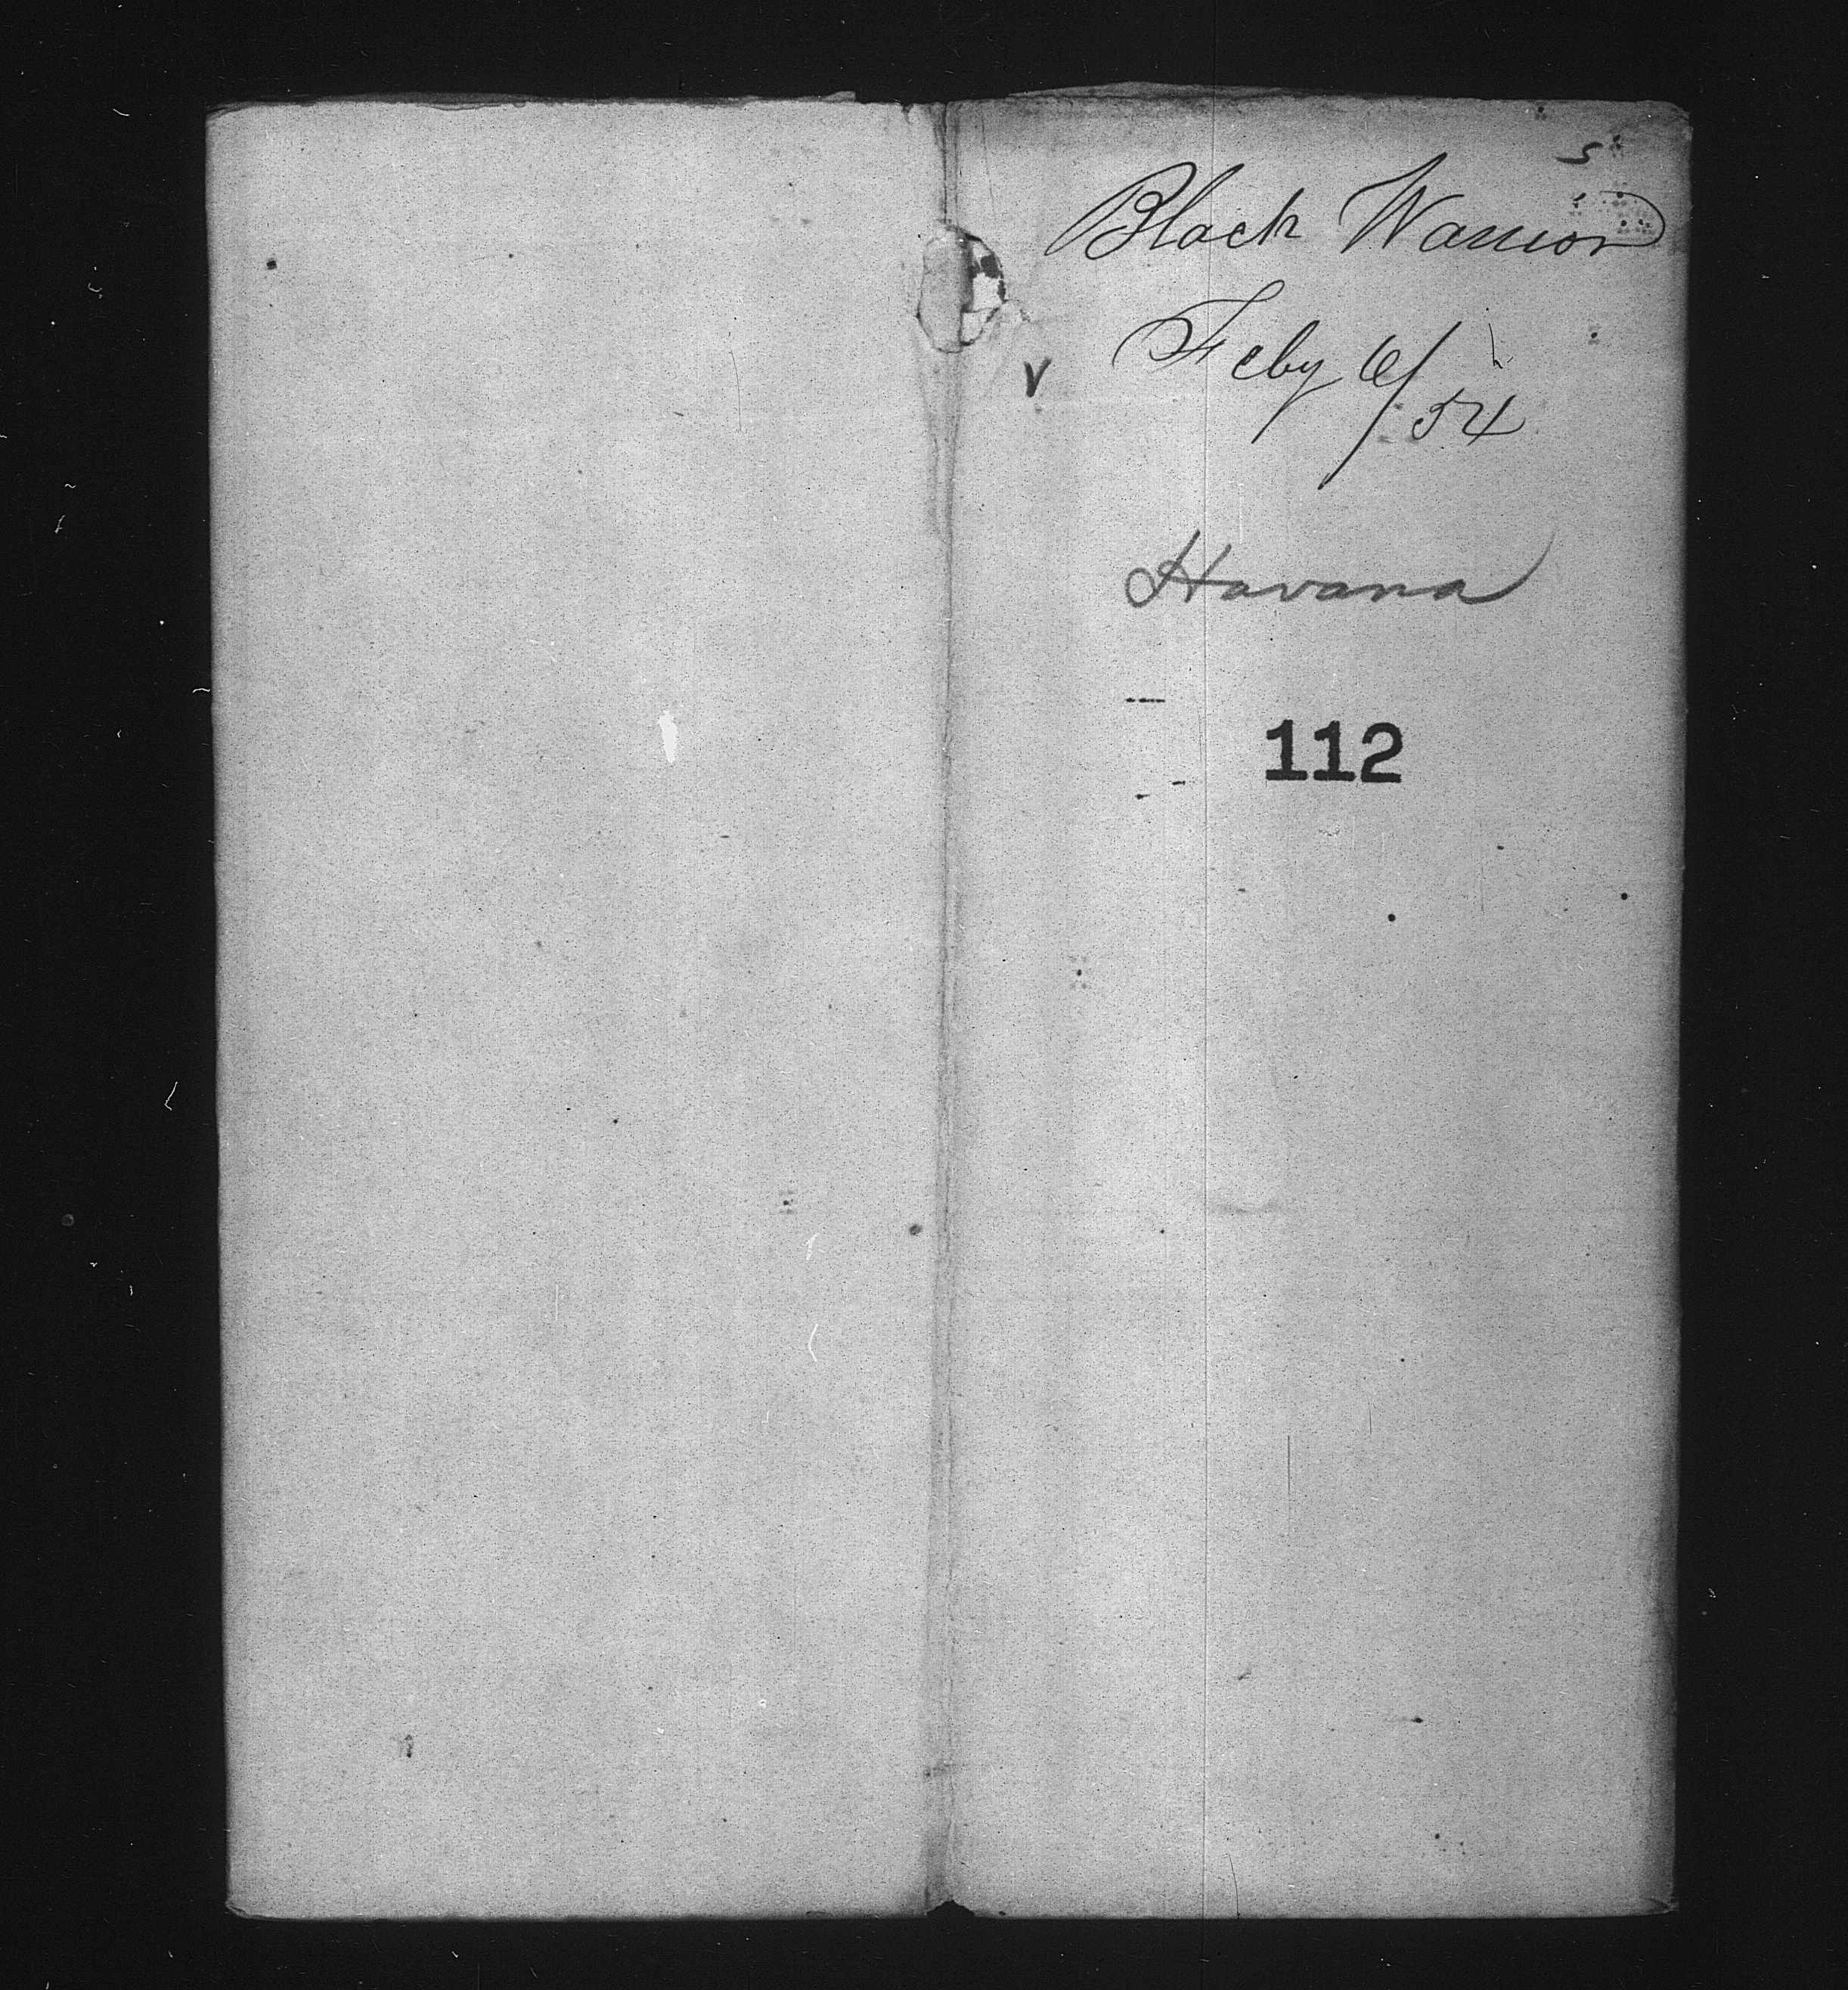 Black Warrior
Feby 6/54
Havana
112